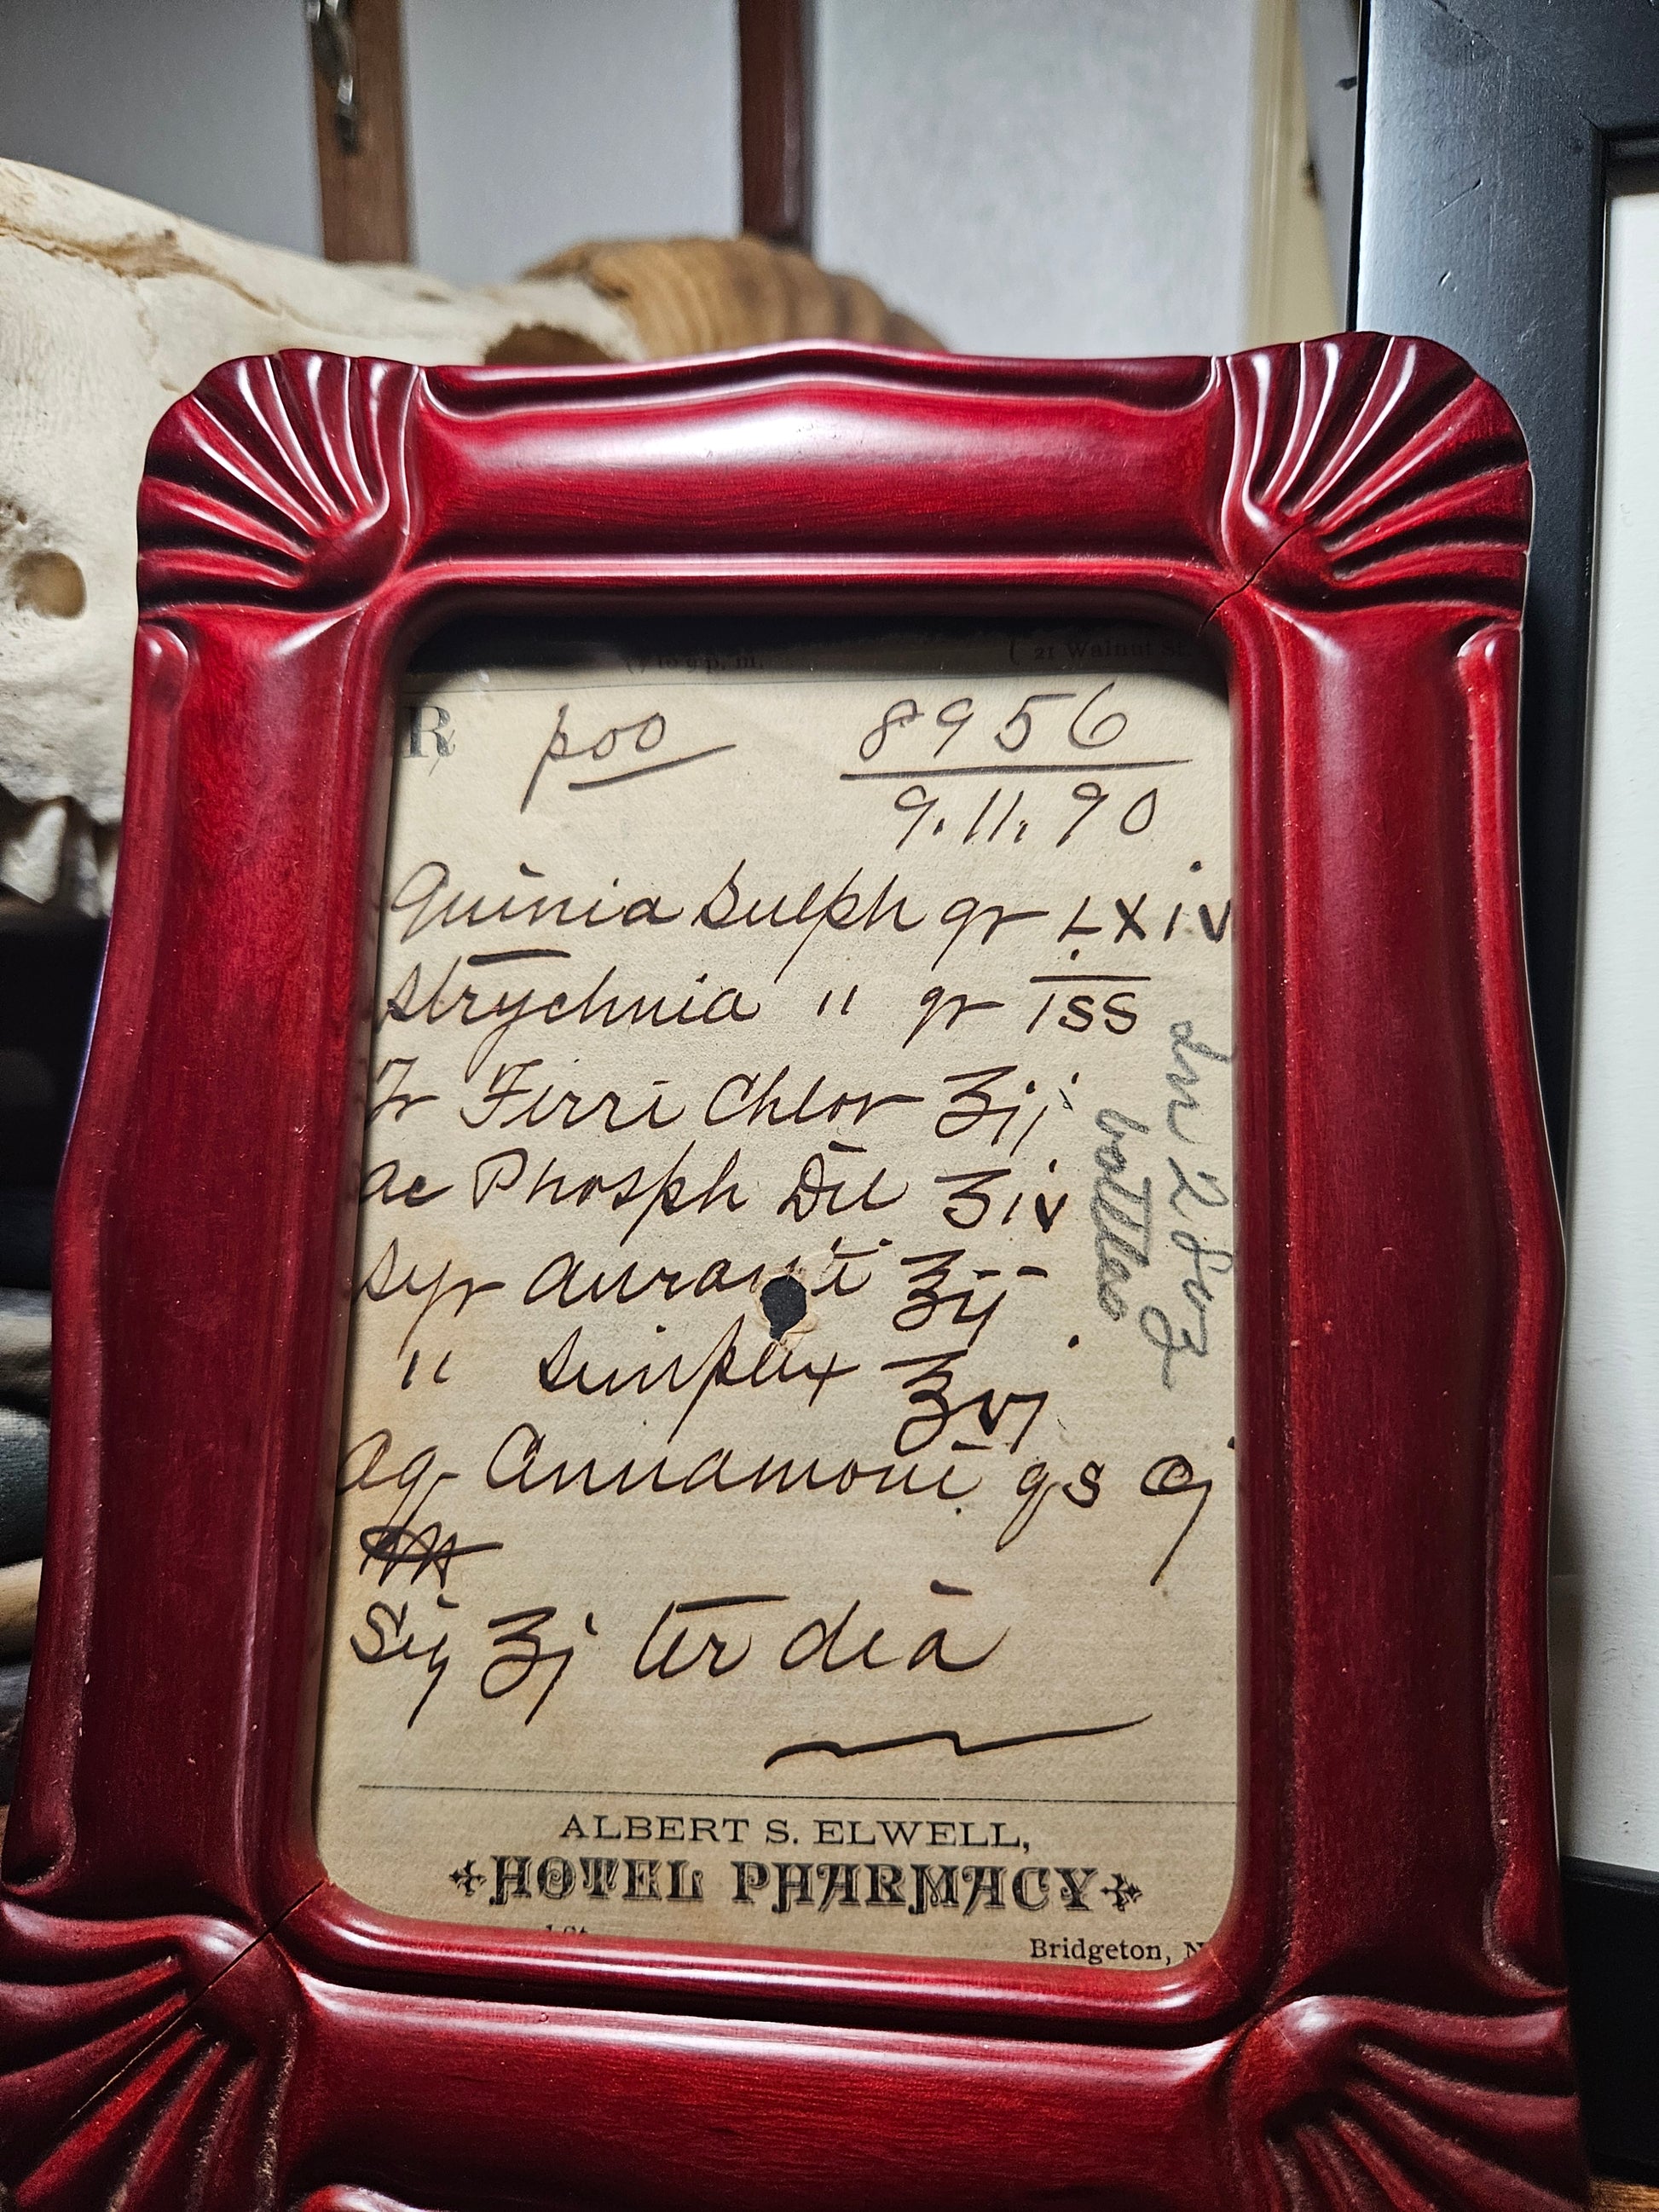 21 Walnut St.
℞ poo 8956
9.11.90
Quinia Sulph gr LXiv
Strychnia " gr iss
Tr Ferri Chlor ʒij
Ac Phosph Dil ʒiv
Syr Auranti ℥ij
" Simplex ℥vj
Aq Cinnamoni qs Oj
M
Sig ʒj ter dia
In 2 8oz
bottles
ALBERT S. ELWELL,
HOTEL PHARMACY
Bridgeton, N